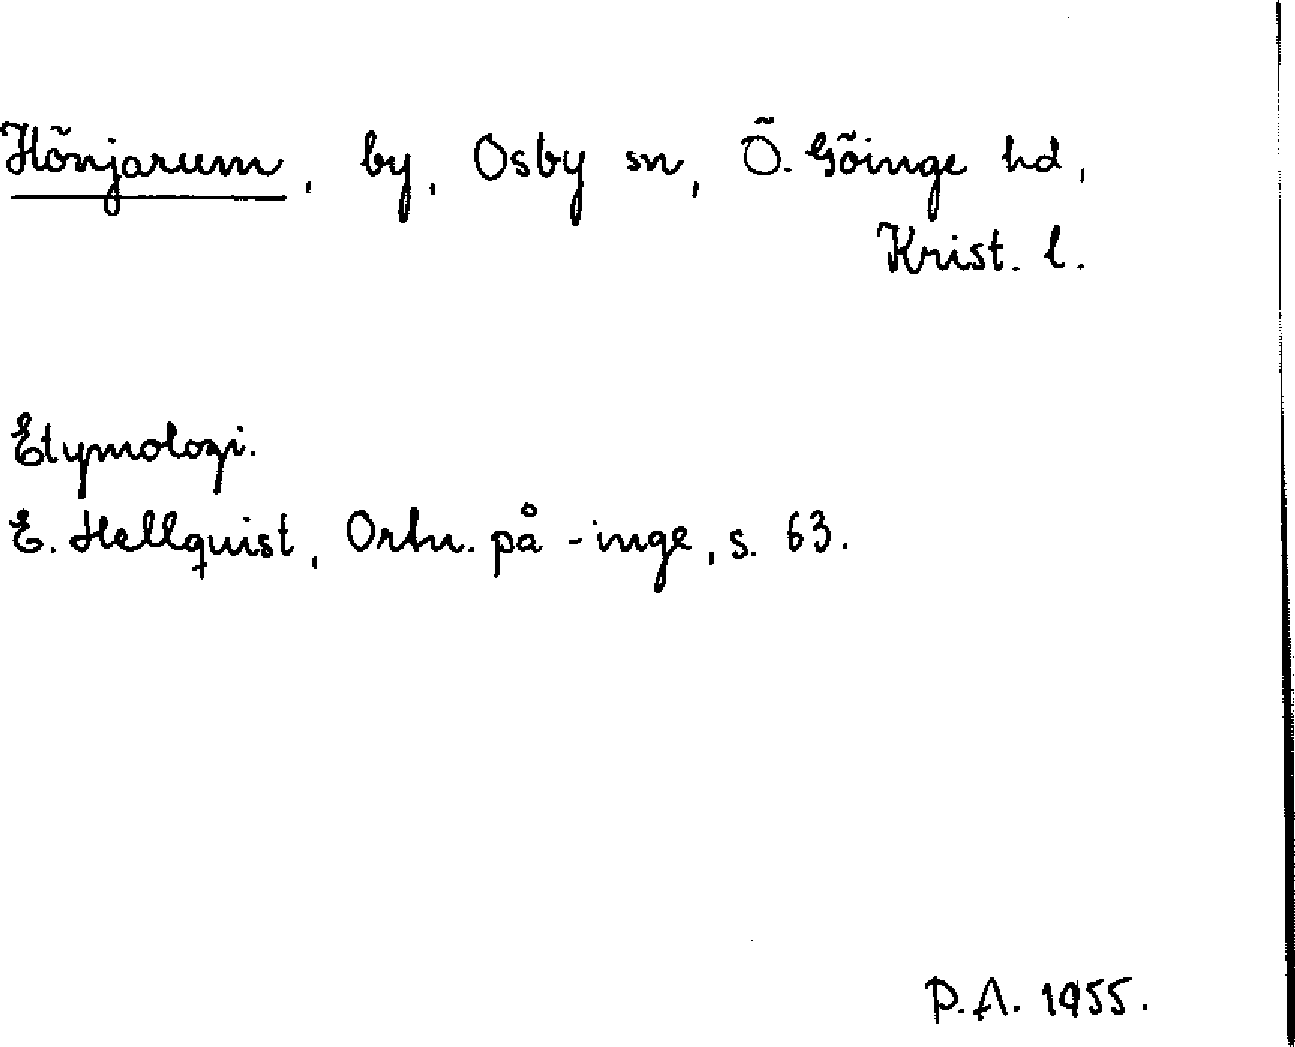 Hönjarum, by, Osby sn, Ö. Göinge hd,
Krist. l.
Etymologi.
E. Hellquist, Ortn. på -inge, s. 63.
P.A. 1955.